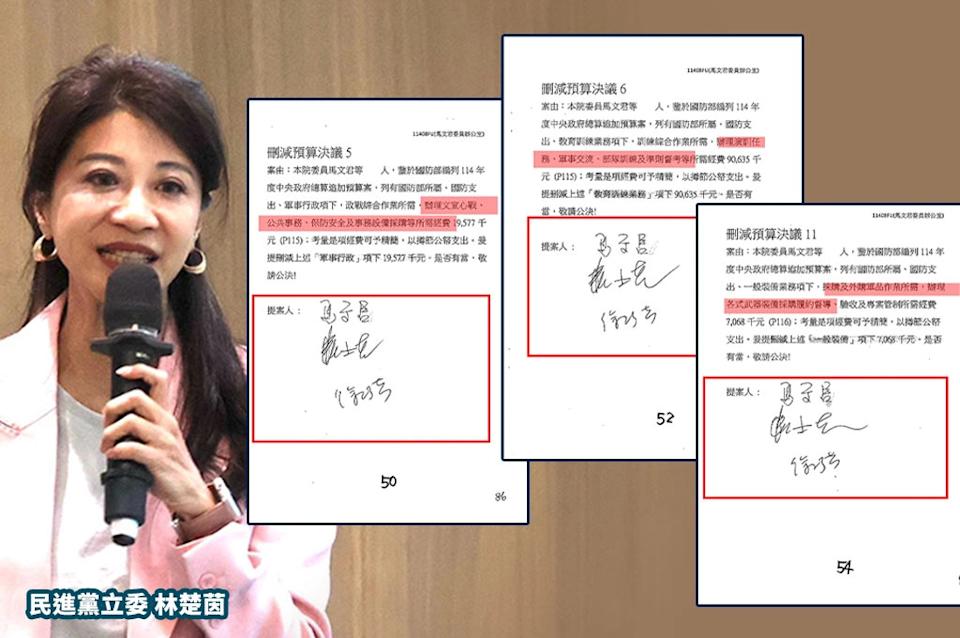 (馬文君委員辦公室)
刪減預算決議 5
案由：本院委員馬文君等 人，鑒於國防部編列 114 年
度中央政府總算追加預算案，列有國防部所屬、國防支
出、軍事行政項下，政戰綜合作業所需，辦理文宣心戰、
公共事務、保防安全及事務設備採購等所需經費 19,577 千
元 (P115)；考量是項經費可予精簡，以撙節公帑支出。爰
提刪減上述「軍事行政」項下 19,577 千元。是否有當，敬
請公決！
提案人：
馬文君
徐巧芯
50
86
(馬文君委員辦公室)
刪減預算決議 6
案由：本院委員馬文君等 人，鑒於國防部編列 114 年
度中央政府總算追加預算案，列有國防部所屬、國防支
出、教育訓練業務項下，訓練綜合作業所需，辦理演訓任
務、軍事交流、部隊訓練及準則督考等所需經費 90,635 千
元 (P115)；考量是項經費可予精簡，以撙節公帑支出。爰
提刪減上述「教育訓練業務」項下 90,635 千元。是否有
當，敬請公決！
提案人：
馬文君
徐巧芯
52
(馬文君委員辦公室)
刪減預算決議 11
案由：本院委員馬文君等 人，鑒於國防部編列 114 年
度中央政府總算追加預算案，列有國防部所屬、國防支
出、一般裝備業務項下，採購及外購軍品作業所需，辦理
各式武器裝備採購履約督導、驗收及專案管制所需經費
7,068 千元 (P116)；考量是項經費可予精簡，以撙節公帑
支出。爰提刪減上述「一般裝備」項下 7,068 千元。是否
有當，敬請公決！
提案人：
馬文君
徐巧芯
54
民進黨立委 林楚茵